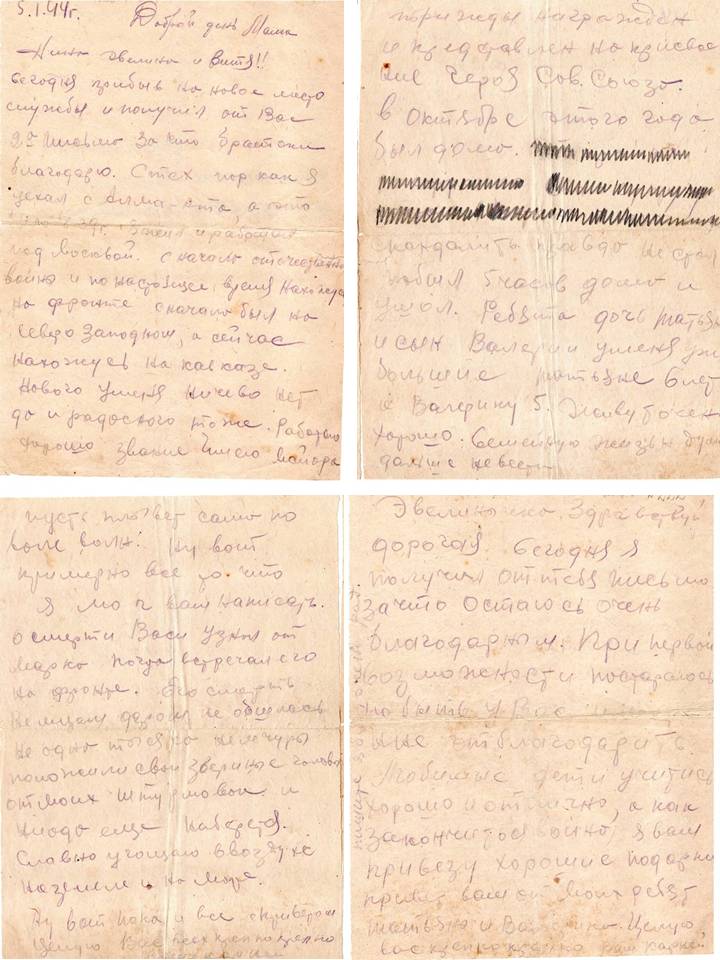 5.1.44г. Добрый день Мама
Нина Эвелина и Витя!!
Сегодня прибыв на новое место
службы и получил от Вас
2ое письмо за что братски
благодарю. С тех пор как я
уехал с Алма-Ата, а это
жил и работал
под Москвой. С начала отечествен
войны и по настоящее время нахожусь
на фронте сначало был на
Северо Западном, а сейчас
нахожусь на кавказе.
Нового у меня ничево нет
да и радосного тоже. Работаю
хорошо звание имею майора
награжден
и представлен на присвое
ние Героя Сов. Союза.
в Октябре этого года
был дома.
Скандалить правда не стал
побыл 5 часов дома и
ушол. Ребята дочь Татьяна
и сын Валерий у меня уже
большие Татьяне 6 лет
а Валерику 5. Живут очен
хорошо. Семейную жизнь
дальше
пусть плывет само по
воле волн. Ну вот
примерно все то что
я мог вам написать.
о смерти Васи узнал от
Марка когда встречал его
на фронте. Его смерть
немцам даром не обошлась
не одна тысяча немчуры
положили свои звериные головы
от моих штурмовок и
иногда еще
Славно угощаю в воздухе
на земле и на море.
Ну вот пока и все с приветом
Целую Вас всех крепко крепко
Эвелиночка Здравствуй
дорогая. Сегодня я
получил от тебя письмо
за что остаюсь очень
благодарным. При первой
возможности постараюсь
побыть у Вас
отблагодарить.
Любимые дети учитесь
хорошо и отлично, а как
закончится война, я вам
привезу хорошие подарки
привет вам от моих ребят
Татьяны и Валерика. Целую
вас крепко крепко